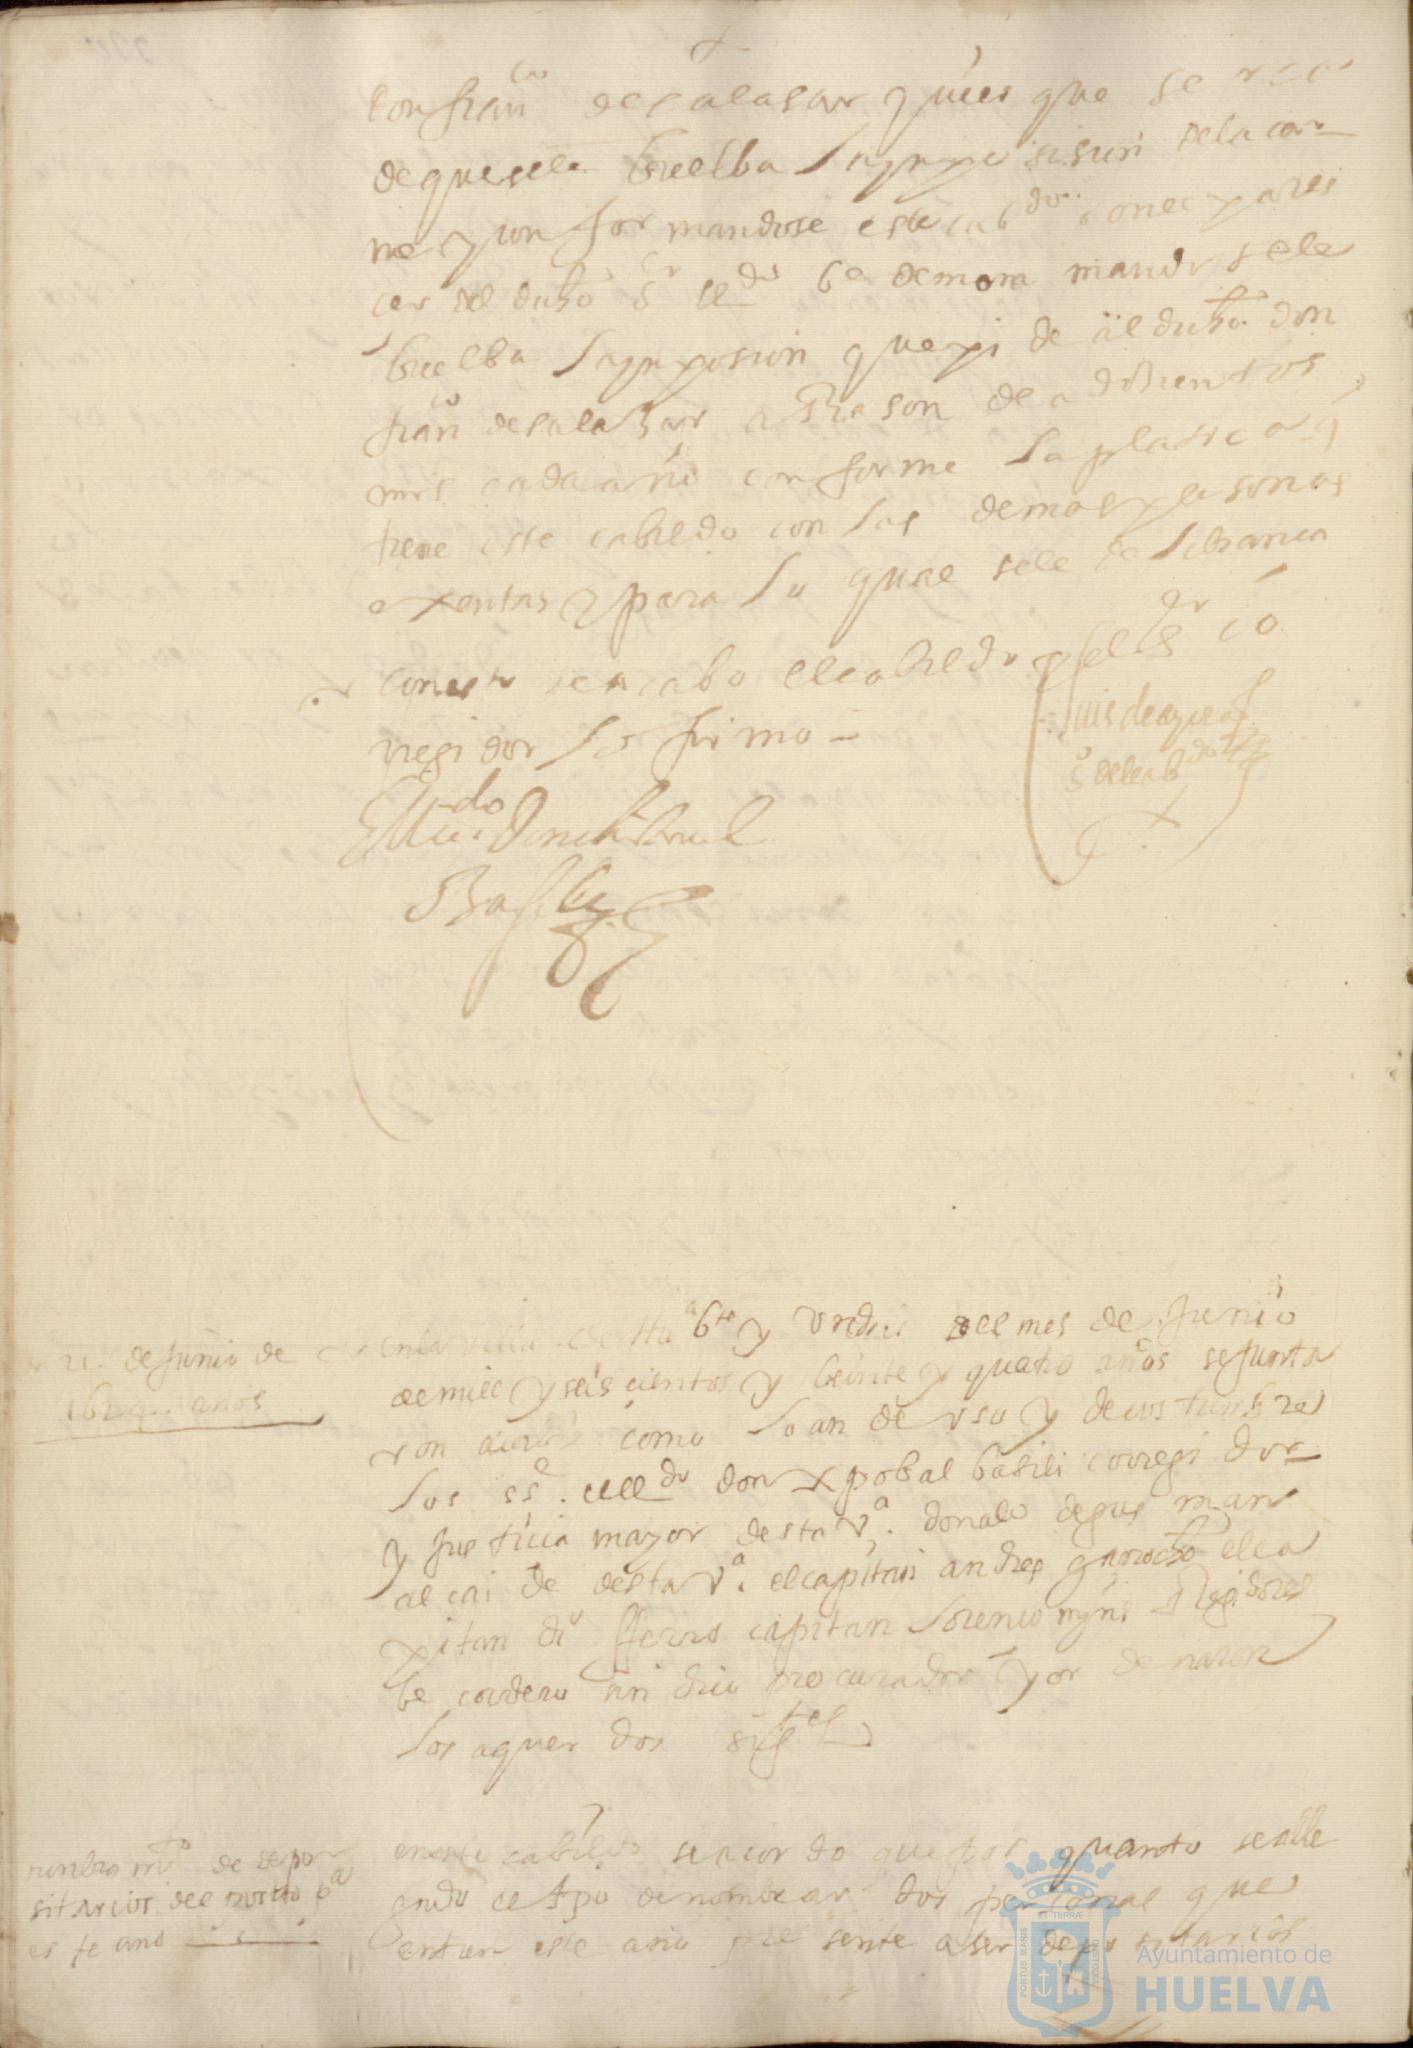 don fran^co de salasar y vies que se
de que se le buelba la ynposision de la car
ne y con formandose este cab^do con el pares
cer del dicho s^r l^do de mora mando se le
buelba la ynposision que pide al dicho don
fran^co de salasar a Rason de a dosientos
mrs cada año con forme la platica q
tiene este cabildo con las demas personas
exentas y para lo qual se le de libransa
con esto se acabo el cabildo y el s^or co
rregidor lo firmo
El l^do Don christoual
Basily
luis de
s^o del cab^do
21 de junio de
1624 años
en la villa de hu^a b^te y un dias del mes de junio
de mill y seis cientos y beinte y quatro años se junta
ron a cabildo como lo an de uso y de costunbres
los ss^es l^do don xpobal basili corregidor
y justicia mayor desta v^a. donalo de gusman
alcaide desta v^a. el capitan andres garrocho el ca
pitan di^o fierro capitan lorenso myns Regidores
be cordero sindico procurador y or denaron
los aquerdos sig^tes
nonbra m^to de depo
sitarios del posito
este año
en este cabildo se acordo que por quanto se alle
gado el tpo de nombrar dos personas que
entren este año presente a ser depositarios
PORTUS MARIS ET TERRAE CUSTODIA
Ayuntamiento de
HUELVA